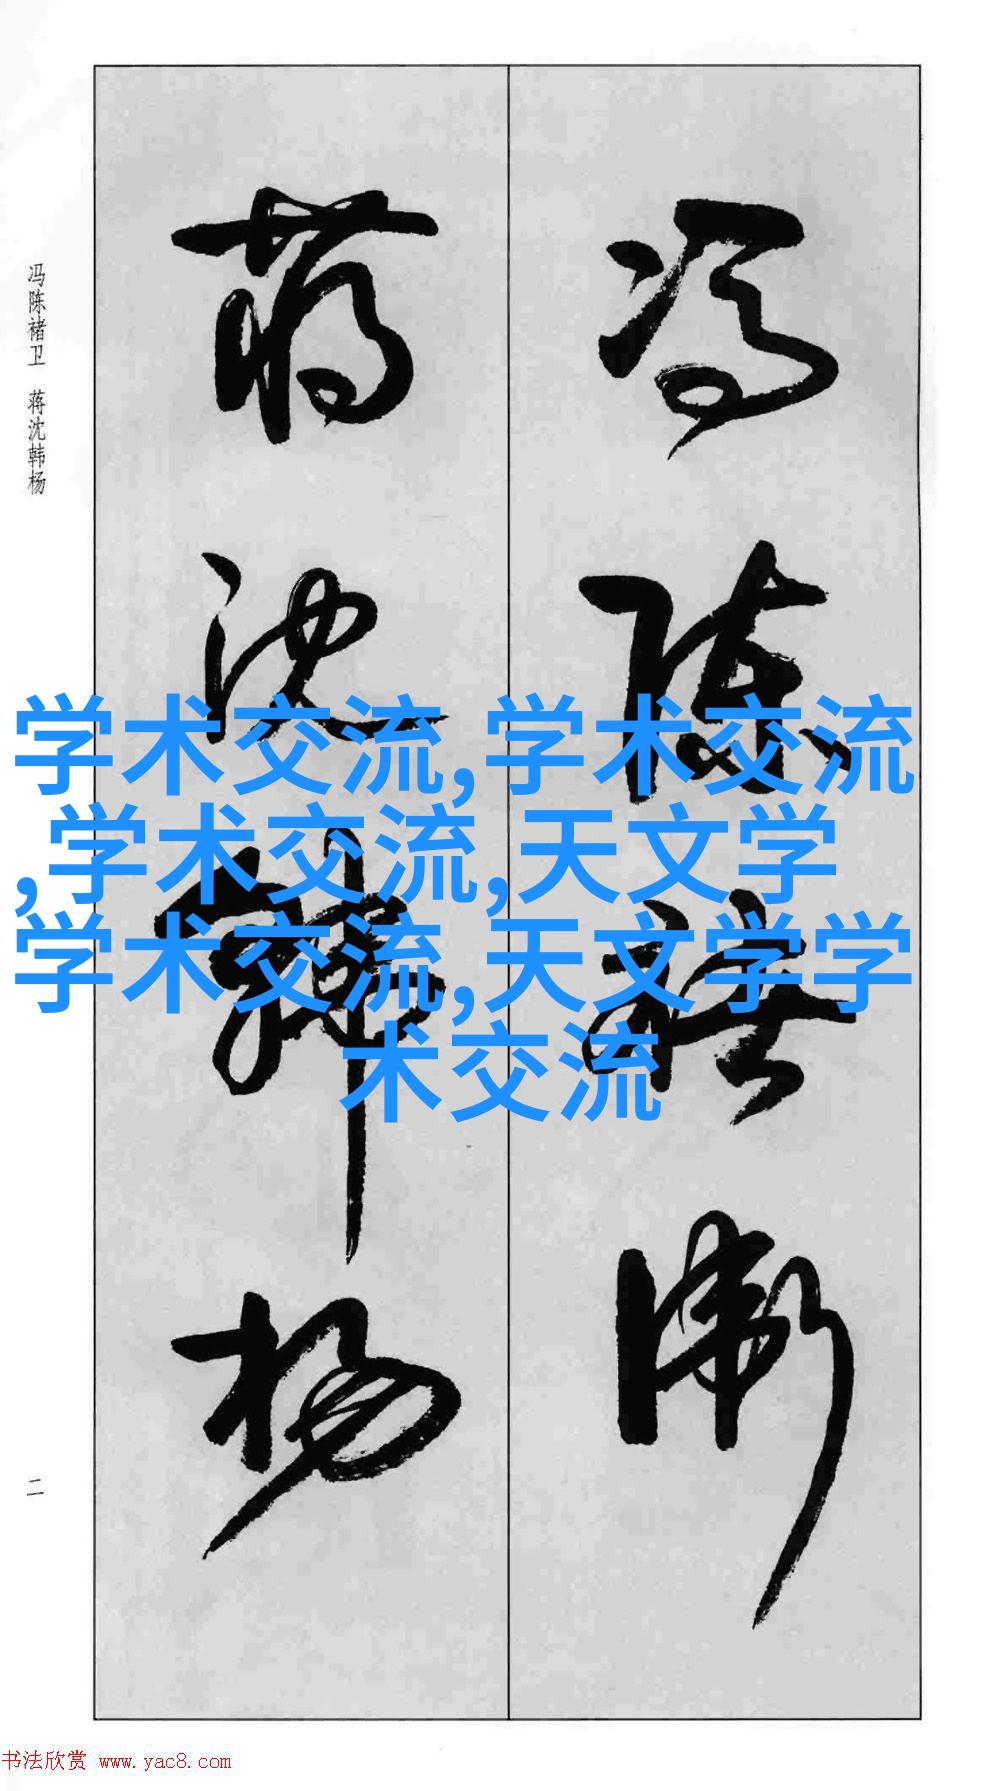 馮陳褚衛
蔣沈韓楊
冯陈褚卫 蒋沈韩杨
二
学术交流,学术交流
,学术交流,天文学
学术交流,天文学学
术交流
书法欣赏 www.yac8.com